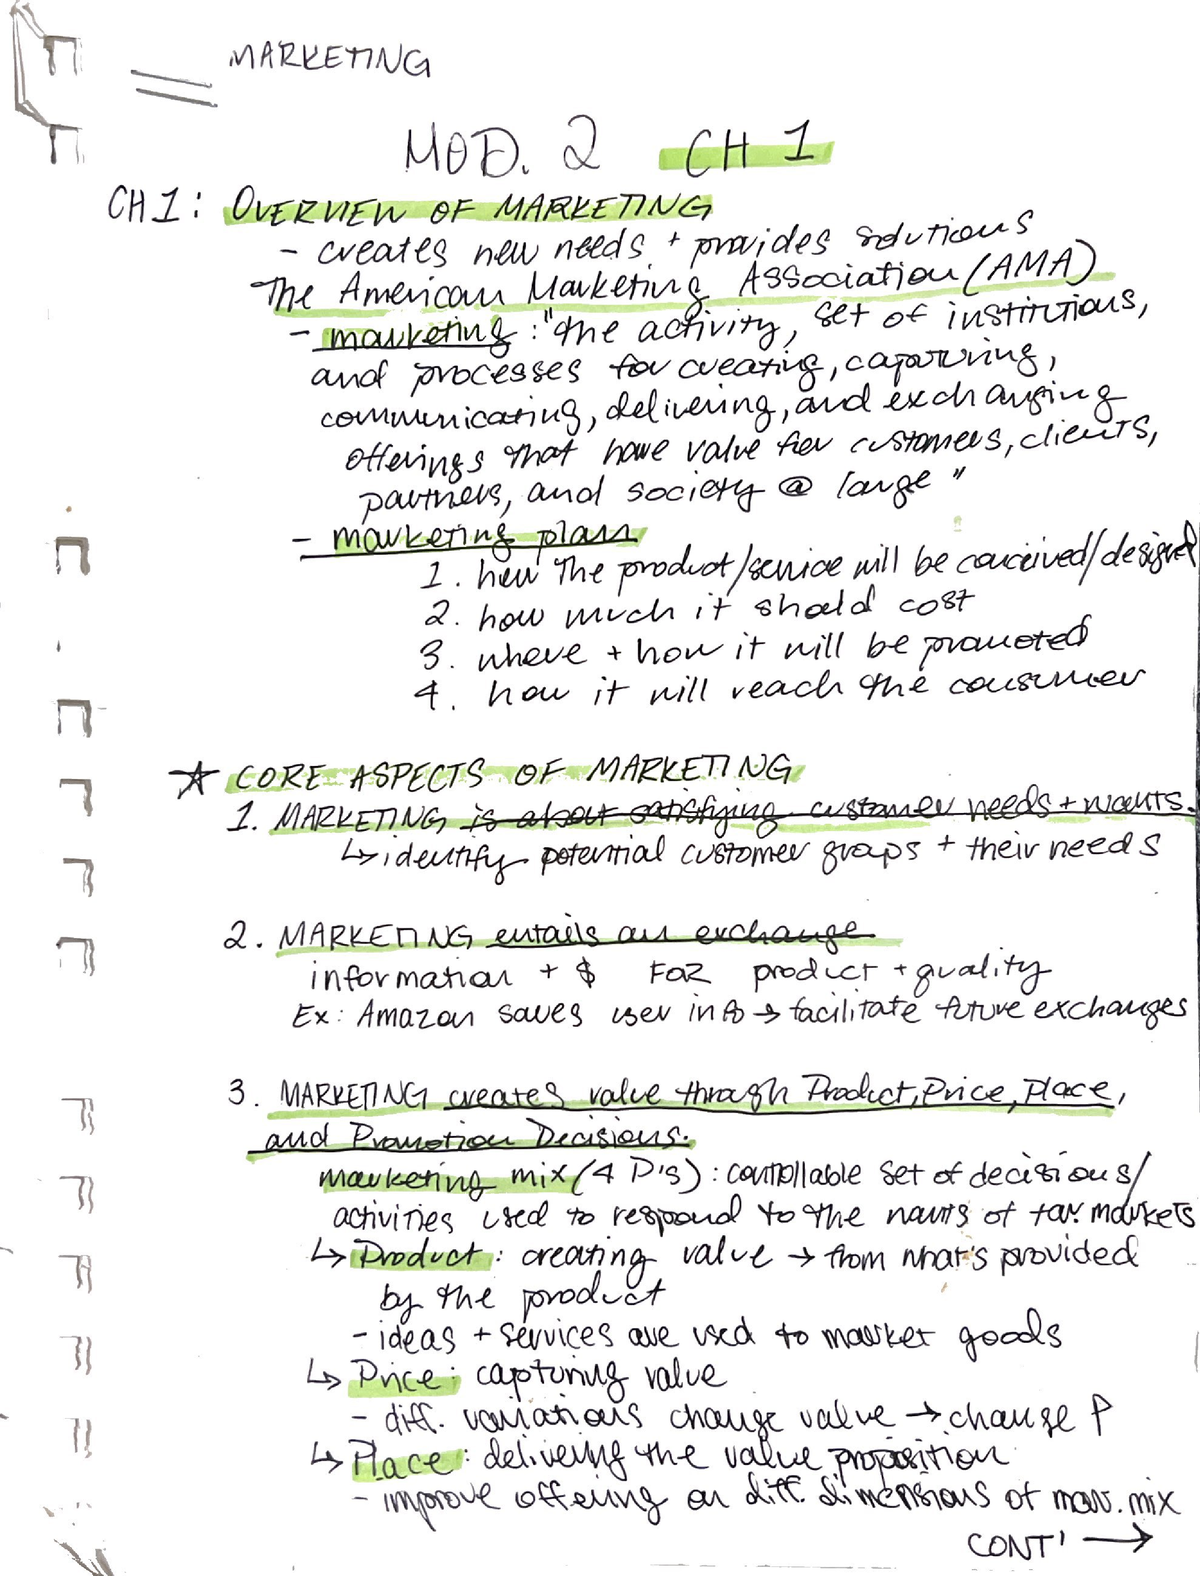 MARKETING
MOD. 2 CH 1
CH1: OVERVIEW OF MARKETING
- creates new needs + provides solutions
The American Marketing Association (AMA)
- marketing: "the activity, set of institutions,
and processes for creating, capturing,
communicating, delivering, and exchanging
offerings that have value for customers, clients,
partners, and society @ large"
- marketing plan
1. how the product/service will be conceived/designed
2. how much it should cost
3. where + how it will be promoted
4. how it will reach the consumer
☆ CORE ASPECTS OF MARKETING
1. MARKETING is about satisfying customer needs + wants.
↳ identify potential customer groups + their needs
2. MARKETING entails an exchange
information + $ FOR product + quality
Ex: Amazon saves user info → facilitate future exchanges
3. MARKETING creates value through Product, Price, Place,
and Promotion Decisions.
marketing mix (4 P's): controllable set of decisions/
activities used to respond to the wants of tar. markets
↳ Product: creating value → from what's provided
by the product
- ideas + services are used to market goods
↳ Price: capturing value
- diff. variations change value → change P
↳ Place: delivering the value proposition
- improve offering on diff. dimensions of mar. mix
CONT' →